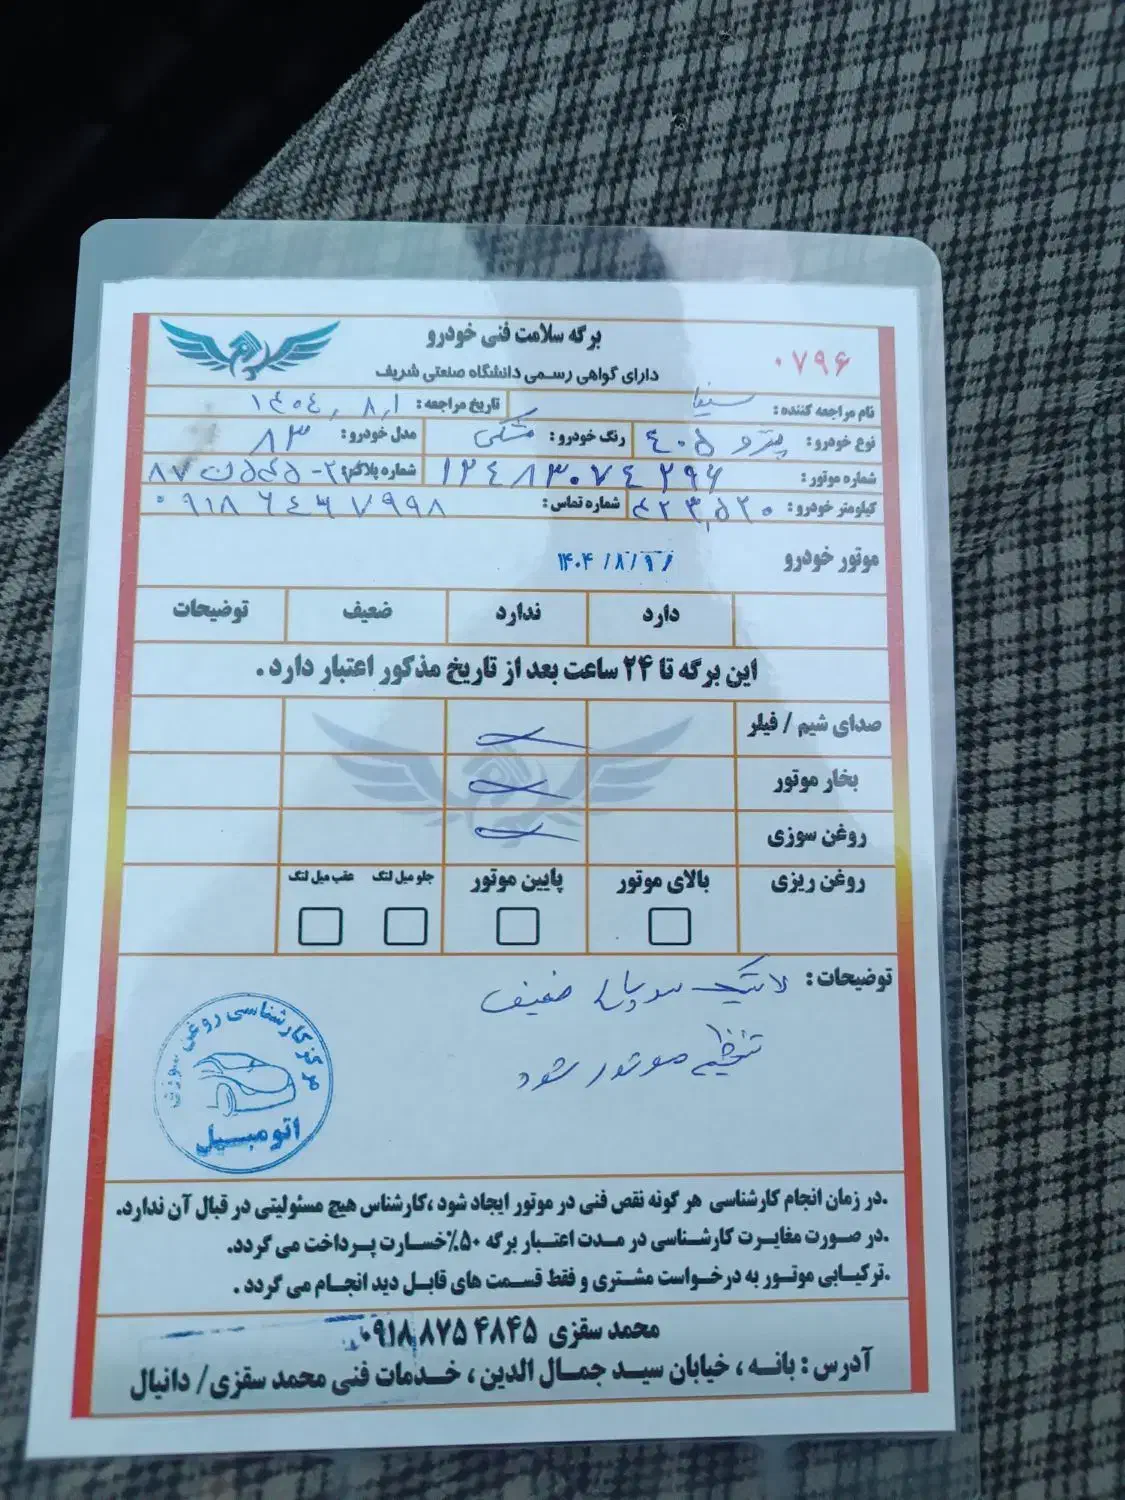 برگه سلامت فنی خودرو
۰۷۹۶
دارای گواهی رسمی دانشگاه صنعتی شریف
نام مراجعه کننده: تاریخ مراجعه: ۱۴۰۴,۸,۱
نوع خودرو: پژو ۴۰۵ رنگ خودرو: مشکی مدل خودرو: ۸۳
شماره موتور: ۱۲۴۸۳۰۷۴۲۹۶ شماره پلاک:
کیلومتر خودرو: ۴۲۳,۵۲۰ شماره تماس: ۰۹۱۸۶۴۳۷۹۹۸
موتور خودرو ۱۴۰۴/۸/۱
دارد ندارد ضعیف توضیحات
این برگه تا ۲۴ ساعت بعد از تاریخ مذکور اعتبار دارد.
صدای شیم / فیلر
بخار موتور
روغن سوزی
روغن ریزی بالای موتور پایین موتور جلو میل لنگ عقب میل لنگ
توضیحات: لاستیک سوپاپ ضعیف
تنظیم موتور شود
مرکز کارشناسی روغن سوزی
اتومبیل
.در زمان انجام کارشناسی هر گونه نقص فنی در موتور ایجاد شود ،کارشناس هیچ مسئولیتی در قبال آن ندارد.
.در صورت مغایرت کارشناسی در مدت اعتبار برگه ۵۰٪خسارت پرداخت می گردد.
.ترکیابی موتور به درخواست مشتری و فقط قسمت های قابل دید انجام می گردد .
محمد سقزی ۰۹۱۸۸۷۵۴۸۴۵
آدرس : بانه ، خیابان سید جمال الدین ، خدمات فنی محمد سقزی/ دانیال